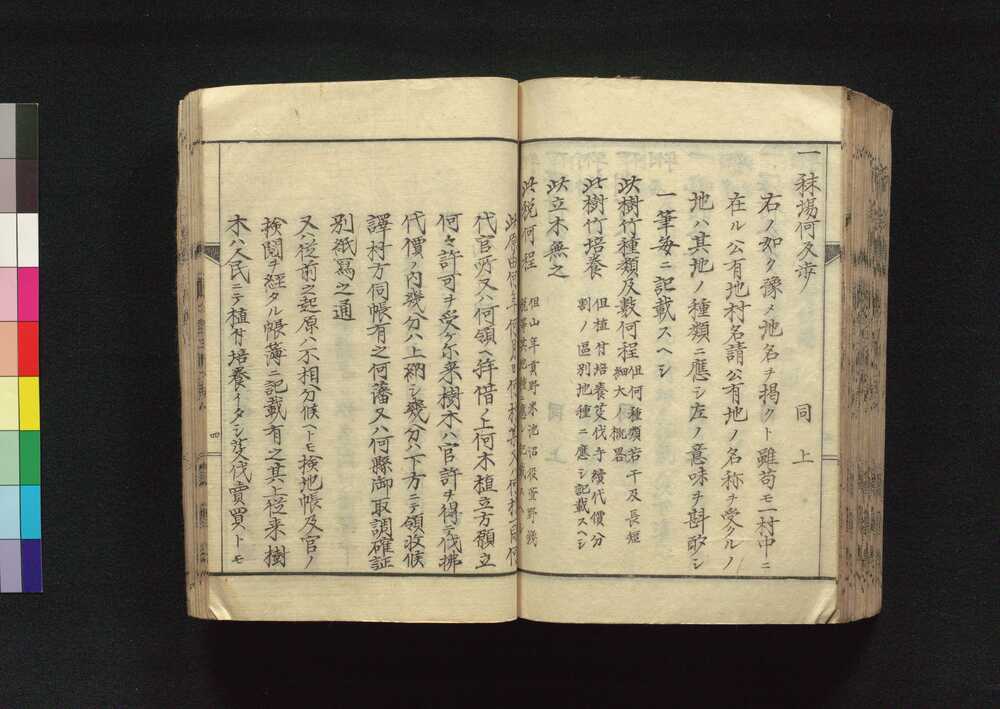 一秣場何反歩　同上
右ノ如ク豫メ地名ヲ掲クト雖苟モ一村中ニ
在ル公有地村名請公有地ノ名称ヲ受クルノ
地ハ其地ノ種類ニ應シ左ノ意味ヲ斟酌シ
一筆毎ニ記載スヘシ
此樹竹種類及数何程　但何種類若干及長短
細大ノ概畧
此樹竹培養　但植付培養芟伐手續代價分
割ノ區別地種ニ應シ記載スヘシ
此立木無之
此税何程　但山年貢野米池沼役萱野銭
代官所又ハ何領ヘ拝借ノ上何木植立方願立
何々許可ヲ受ケ尓来樹木ハ官許ヲ得テ伐拂
代價ノ内幾分ハ上納シ幾分ハ下方ニテ領收候
譯村方伺帳有之何藩又ハ何縣御取調確証
別紙寫之通
又従前之起原ハ不相分候ヘトモ検地帳及官ノ
検閲ヲ経タル帳簿ニ記載有之其上従来樹
木ハ人民ニテ植付培養イタシ芟伐賣買ストモ
四